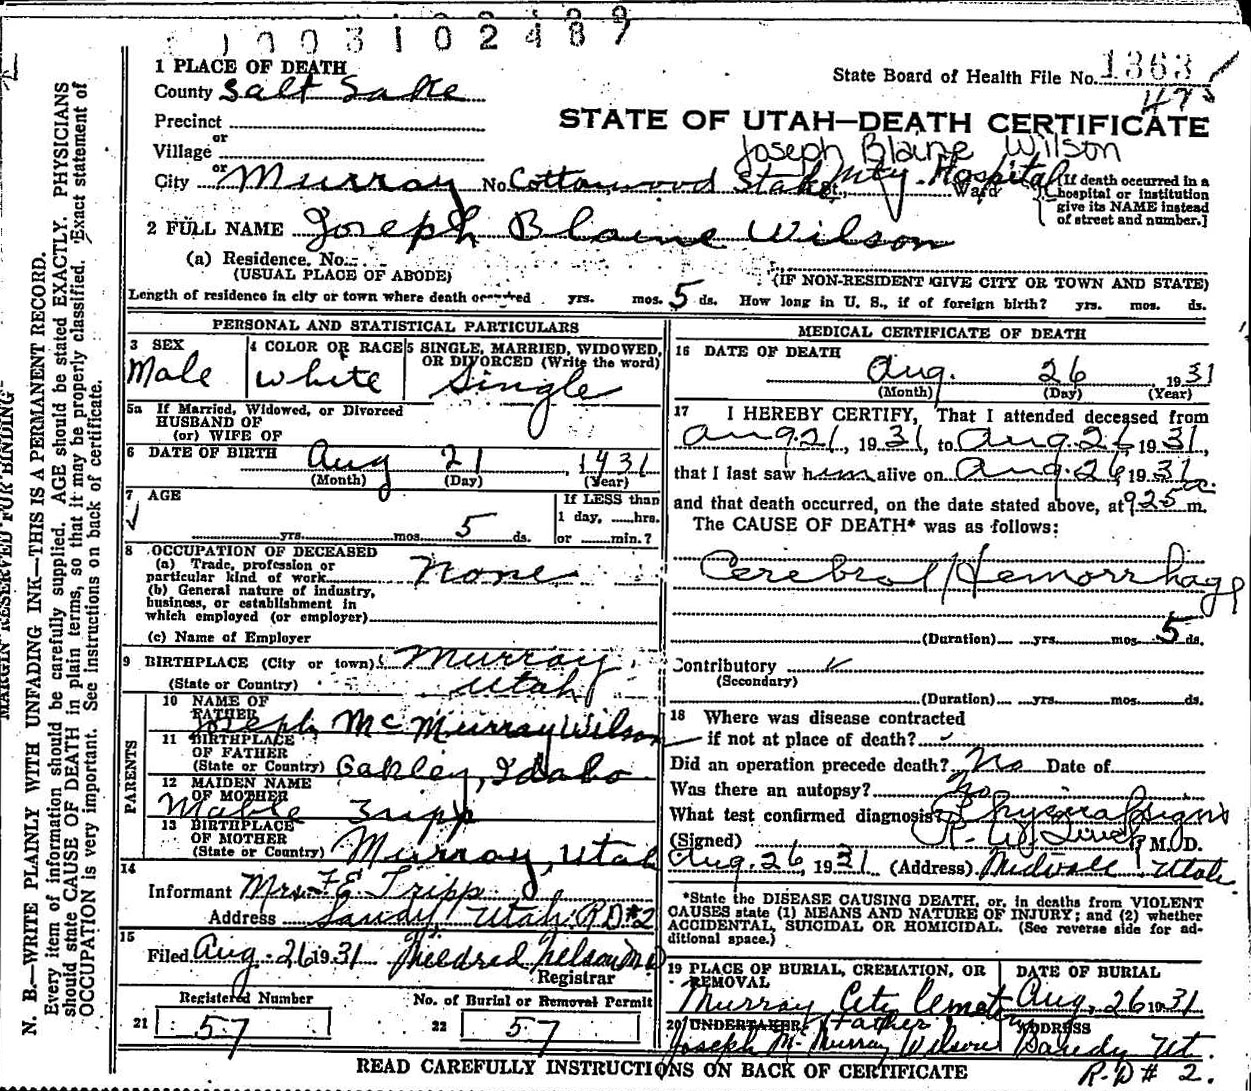 1003102489
1 PLACE OF DEATH
State Board of Health File No. 1363
County Salt Lake
475
Precinct
STATE OF UTAH—DEATH CERTIFICATE
or
Joseph Blaine Wilson
Village
or
City Murray No. Cottonwood Stake Mty. Hospital St., Ward
[If death occurred in a
hospital or institution
give its NAME instead
of street and number.]
2 FULL NAME Joseph Blaine Wilson
(a) Residence. No.
(USUAL PLACE OF ABODE)
(IF NON-RESIDENT GIVE CITY OR TOWN AND STATE)
Length of residence in city or town where death occurred yrs. mos. 5 ds. How long in U. S., if of foreign birth? yrs. mos. ds.
PERSONAL AND STATISTICAL PARTICULARS
3 SEX
Male
4 COLOR OR RACE
White
5 SINGLE, MARRIED, WIDOWED,
OR DIVORCED (Write the word)
Single
5a If Married, Widowed, or Divorced
HUSBAND OF
(or) WIFE OF
6 DATE OF BIRTH Aug 21, 1931
(Month) (Day) (Year)
7 AGE
yrs. mos. 5 ds.
If LESS than
1 day, hrs.
or min.?
8 OCCUPATION OF DECEASED
(a) Trade, profession or
particular kind of work None
(b) General nature of industry,
business, or establishment in
which employed (or employer)
(c) Name of Employer
9 BIRTHPLACE (City or town) Murray
(State or Country) Utah
PARENTS
10 NAME OF
FATHER
Joseph McMurray Wilson
11 BIRTHPLACE
OF FATHER
(State or Country) Oakley, Idaho
12 MAIDEN NAME
OF MOTHER
Mable Tripp
13 BIRTHPLACE
OF MOTHER
(State or Country) Murray, Utah
14
Informant Mrs. F E Tripp
Address Sandy Utah RD#2
15
Filed Aug. 26 1931 Mildred Nelson MD
Registrar
Registered Number
21 57
No. of Burial or Removal Permit
22 57
MEDICAL CERTIFICATE OF DEATH
16 DATE OF DEATH
Aug. 26 1931
(Month) (Day) (Year)
17 I HEREBY CERTIFY, That I attended deceased from
Aug. 21, 1931, to Aug. 26 1931,
that I last saw him alive on Aug. 26, 1931
and that death occurred, on the date stated above, at 925 a. m.
The CAUSE OF DEATH* was as follows:
Cerebral Hemorrhage
(Duration) yrs. mos. 5 ds.
Contributory
(Secondary)
(Duration) yrs. mos. ds.
18 Where was disease contracted
if not at place of death?
Did an operation precede death? No Date of
Was there an autopsy? No
What test confirmed diagnosis? Physical Signs
(Signed) M. D.
Aug. 26, 1931 (Address) Midvale Utah.
*State the DISEASE CAUSING DEATH, or, in deaths from VIOLENT
CAUSES state (1) MEANS AND NATURE OF INJURY; and (2) whether
ACCIDENTAL, SUICIDAL OR HOMICIDAL. (See reverse side for ad-
ditional space.)
19 PLACE OF BURIAL, CREMATION, OR
REMOVAL
Murray City Cemetery
DATE OF BURIAL
Aug. 26 1931
20 UNDERTAKER Father
Joseph McMurray Wilson
ADDRESS
Sandy Ut.
R.D # 2.
READ CAREFULLY INSTRUCTIONS ON BACK OF CERTIFICATE
MARGIN RESERVED FOR BINDING
N. B.—WRITE PLAINLY WITH UNFADING INK—THIS IS A PERMANENT RECORD.
Every item of information should be carefully supplied. AGE should be stated EXACTLY. PHYSICIANS
should state CAUSE OF DEATH in plain terms, so that it may be properly classified. Exact statement of
OCCUPATION is very important. See instructions on back of certificate.